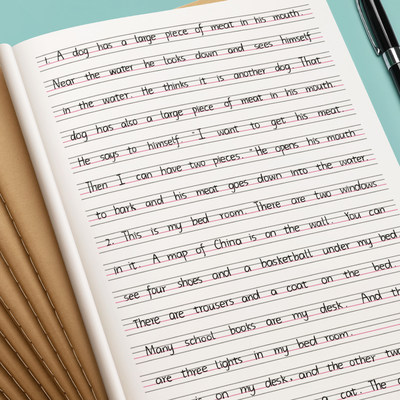 1 A dog has a large piece of meat in his mouth
Near the water he looks down and sees himself
in the water. He thinks it is another dog That
dog has also a large piece of meat in his mouth
He says to himself. "I want to get his meat
Then I can have two pieces. "He opens his mouth
to bark and his meat goes down into the water.
2. This is my bed room. There are two windows
in it. A map of China is on the wall. You can
see four shoes and a basketball under my bed
There are trousers and a coat on the bed
Many school books are my desk. And
are three lights in my bed room.
on my desk, and the other two
a cat. The